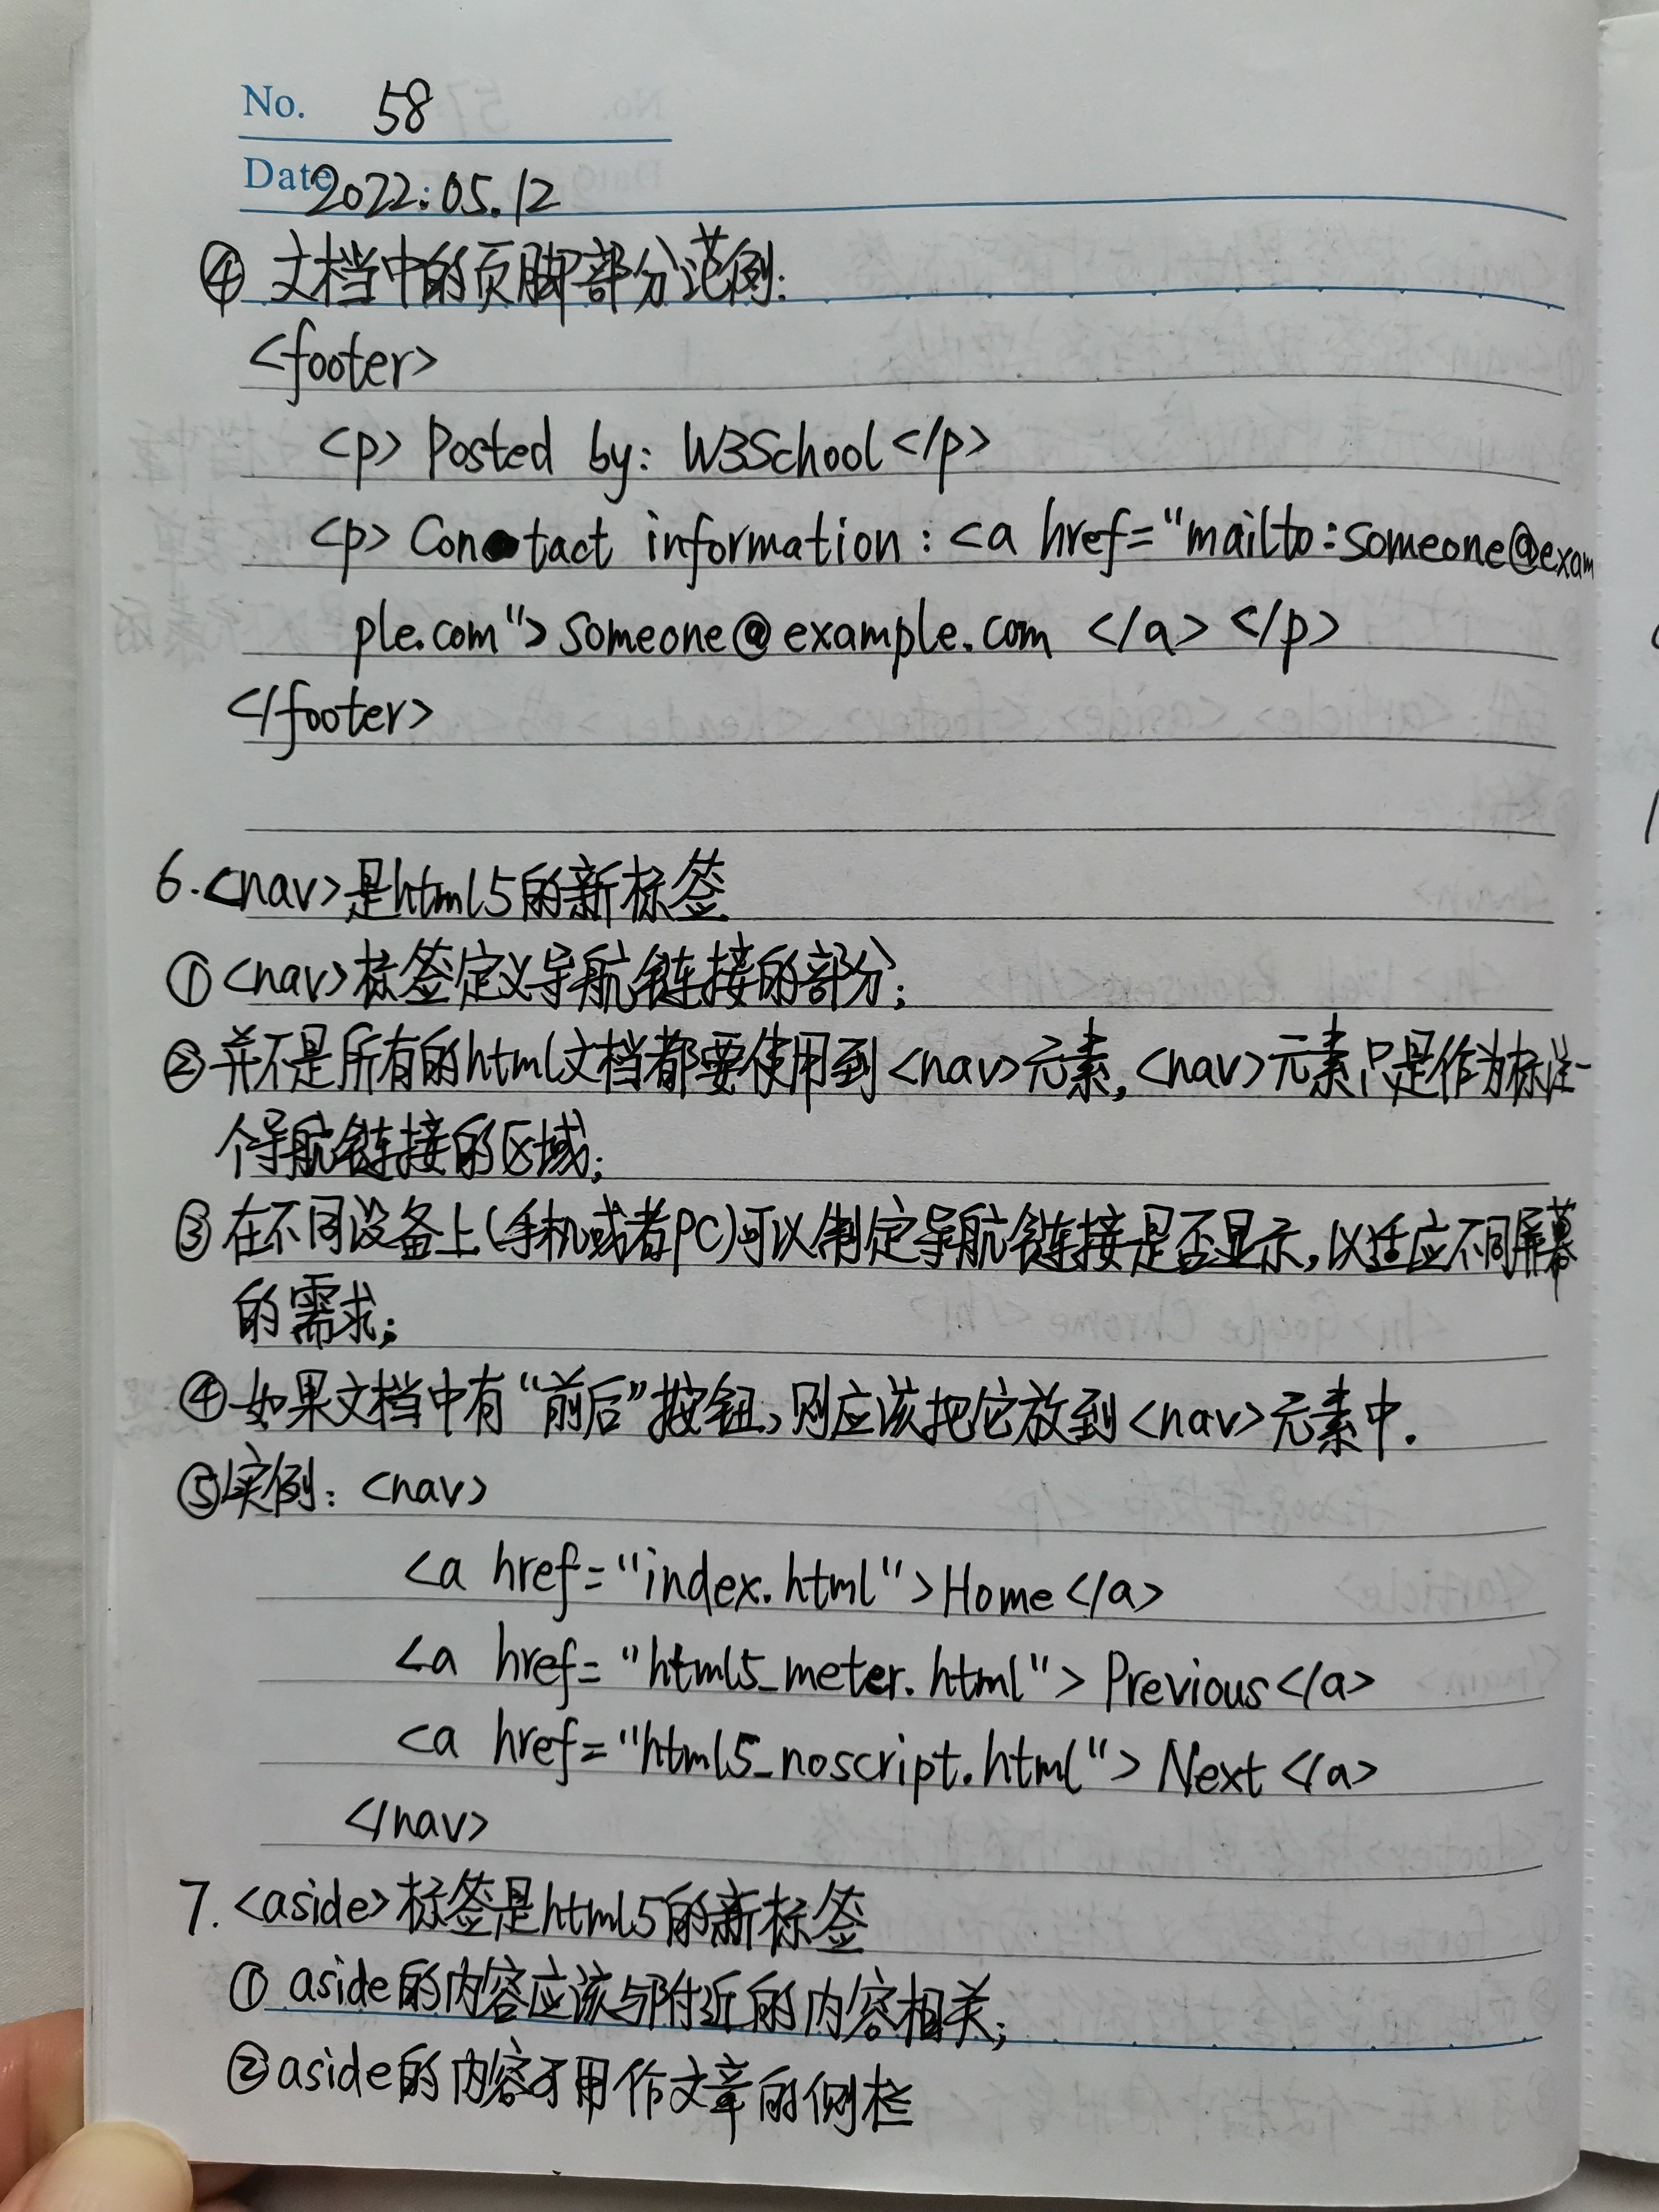 No. 58
Date 2022.05.12
④ 文档中的页脚部分范例:
<footer>
<p> Posted by: W3School</p>
<p> Contact information: <a href="mailto:someone@exam
ple.com">someone@example.com </a> </p>
</footer>
6.<nav>是html5的新标签
①<nav>标签定义导航链接的部分;
②并不是所有的html文档都要使用到<nav>元素,<nav>元素只是作为标注一
个导航链接的区域;
③在不同设备上(手机或者PC)可以制定导航链接是否显示,以适应不同屏幕
的需求;
④如果文档中有“前后”按钮,则应该把它放到<nav>元素中.
⑤实例: <nav>
<a href="index.html">Home</a>
<a href="html5_meter.html">Previous</a>
<a href="html5_noscript.html">Next</a>
</nav>
7. <aside>标签是html5的新标签
① aside的内容应该与附近的内容相关;
②aside的内容可用作文章的侧栏